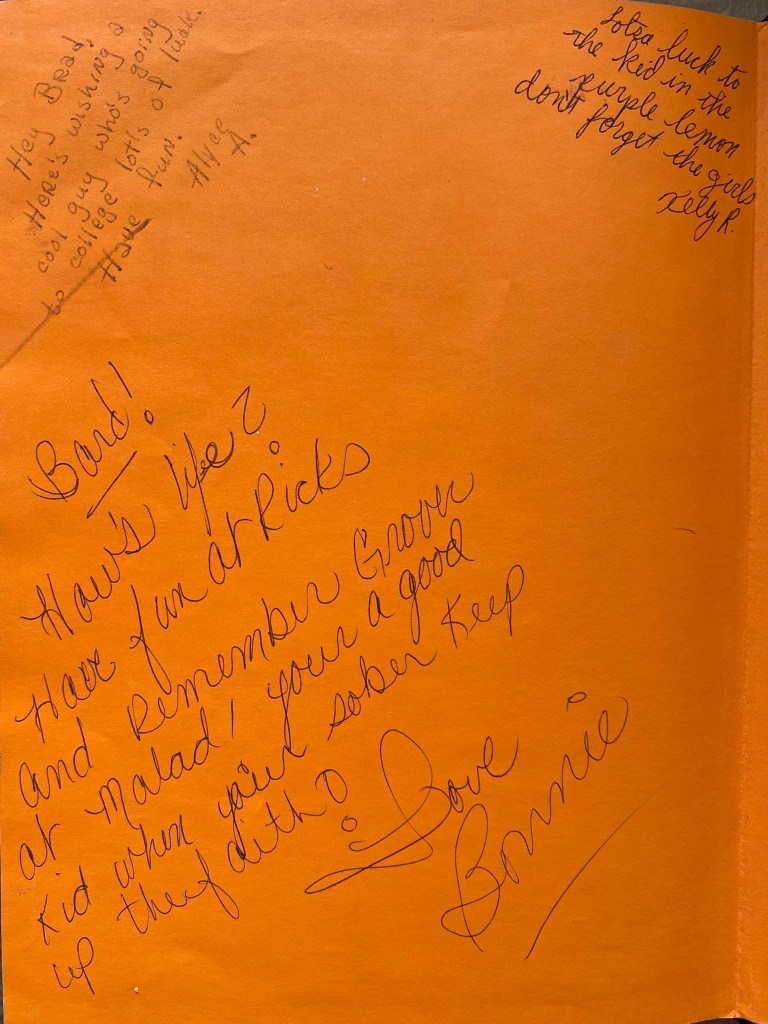 Hey Brad,
Here's wishing a
cool guy who's going
to college lot's of luck.
Have fun.
A.
Lotsa luck to
the kid in the
purple lemon
don't forget the girls
Kelly R.
Bard!
How's life?
Have fun at Ricks
and Remember Groover
at Malad! your a good
Kid when your sober Keep
up the faith!
Love
Bonnie